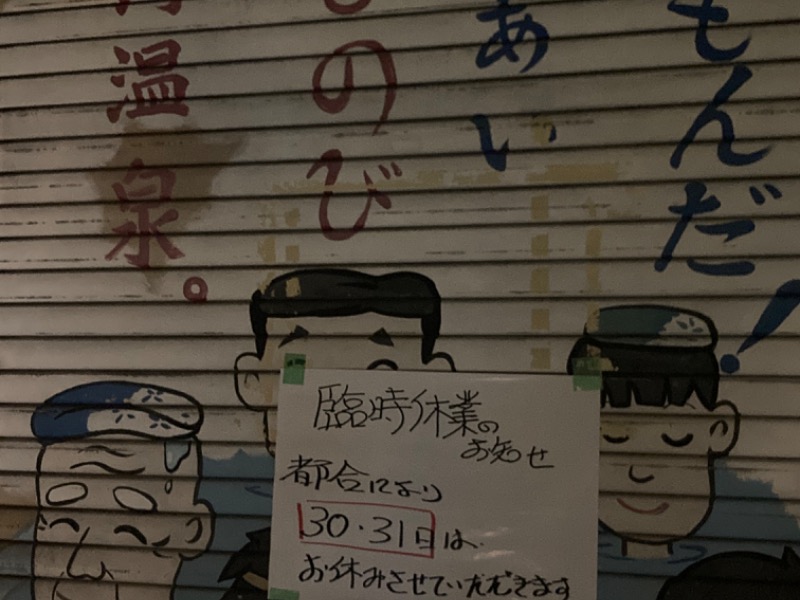 もんだ!
あい
のび
温泉。
臨時休業の
お知せ
都合により
30・31日は
お休みさせていただきます